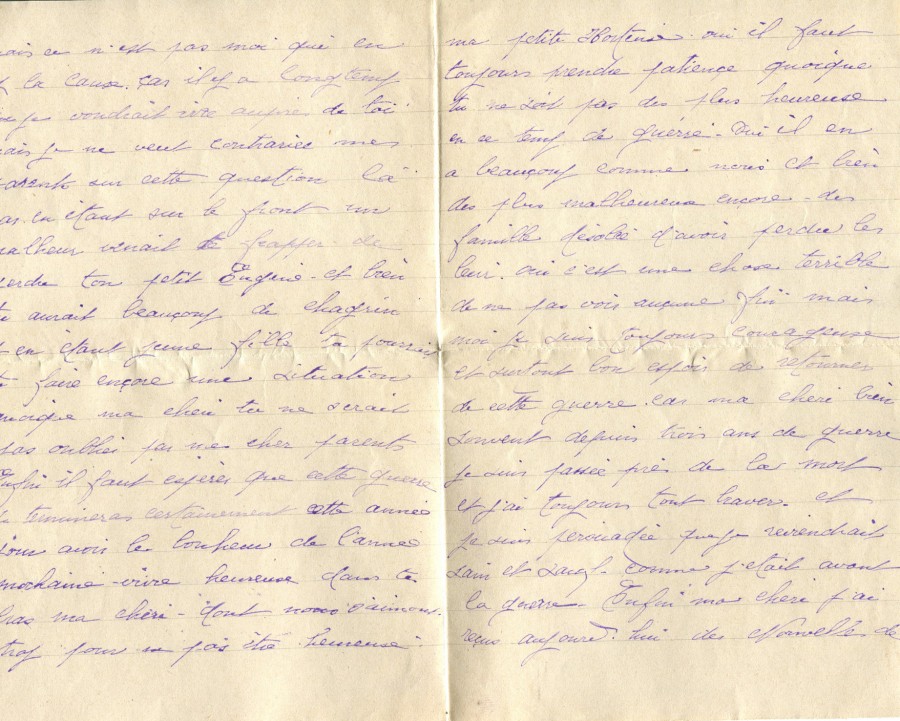 mais ce n'est pas moi qui en
la cause. car il y a longtemp
que je voudrait vivre auprès de toi
mais je ne veut contrarier mes
parents sur cette question là
car en étant sur le front un
malheur venait te frapper de
perdre ton petit Eugène et bien
tu aurait beaucoup de chagrin
et en étant jeune fille tu pourrais
te faire encore une situation
quoique ma cheri tu ne serait
pas oublié par mes cher parents
Enfin il faut espérer que cette guerre
se termineras certainement cette année
pour avoir le bonheur de l'année
prochaine vivre heureuse dans tes
bras ma chéri - dont nous s'aimons
trop pour ne pas être heureuse
ma petite Hortense oui il faut
toujours prendre patience quoique
tu ne soit pas des plus heureuse
en ce temp de guerre - Oui il en
a beaucoup comme nous et bien
des plus malheureuse encore - des
famille désolé d'avoir perdue les
leur. oui c'est une chose terrible
de ne pas voir aucune fin mais
moi je suis toujours courageuse
et surtout bon espoir de retourner
de cette guerre. car ma chéri bien
souvent depuis trois ans de guerre
je suis passée près de la mort
et j'ai toujours tout traver. et
je suis persuadée que je reviendrait
sain et sauf. comme j'était avant
la guerre. Enfin ma chéri j'ai
reçus aujourd'hui des Nouvelle de